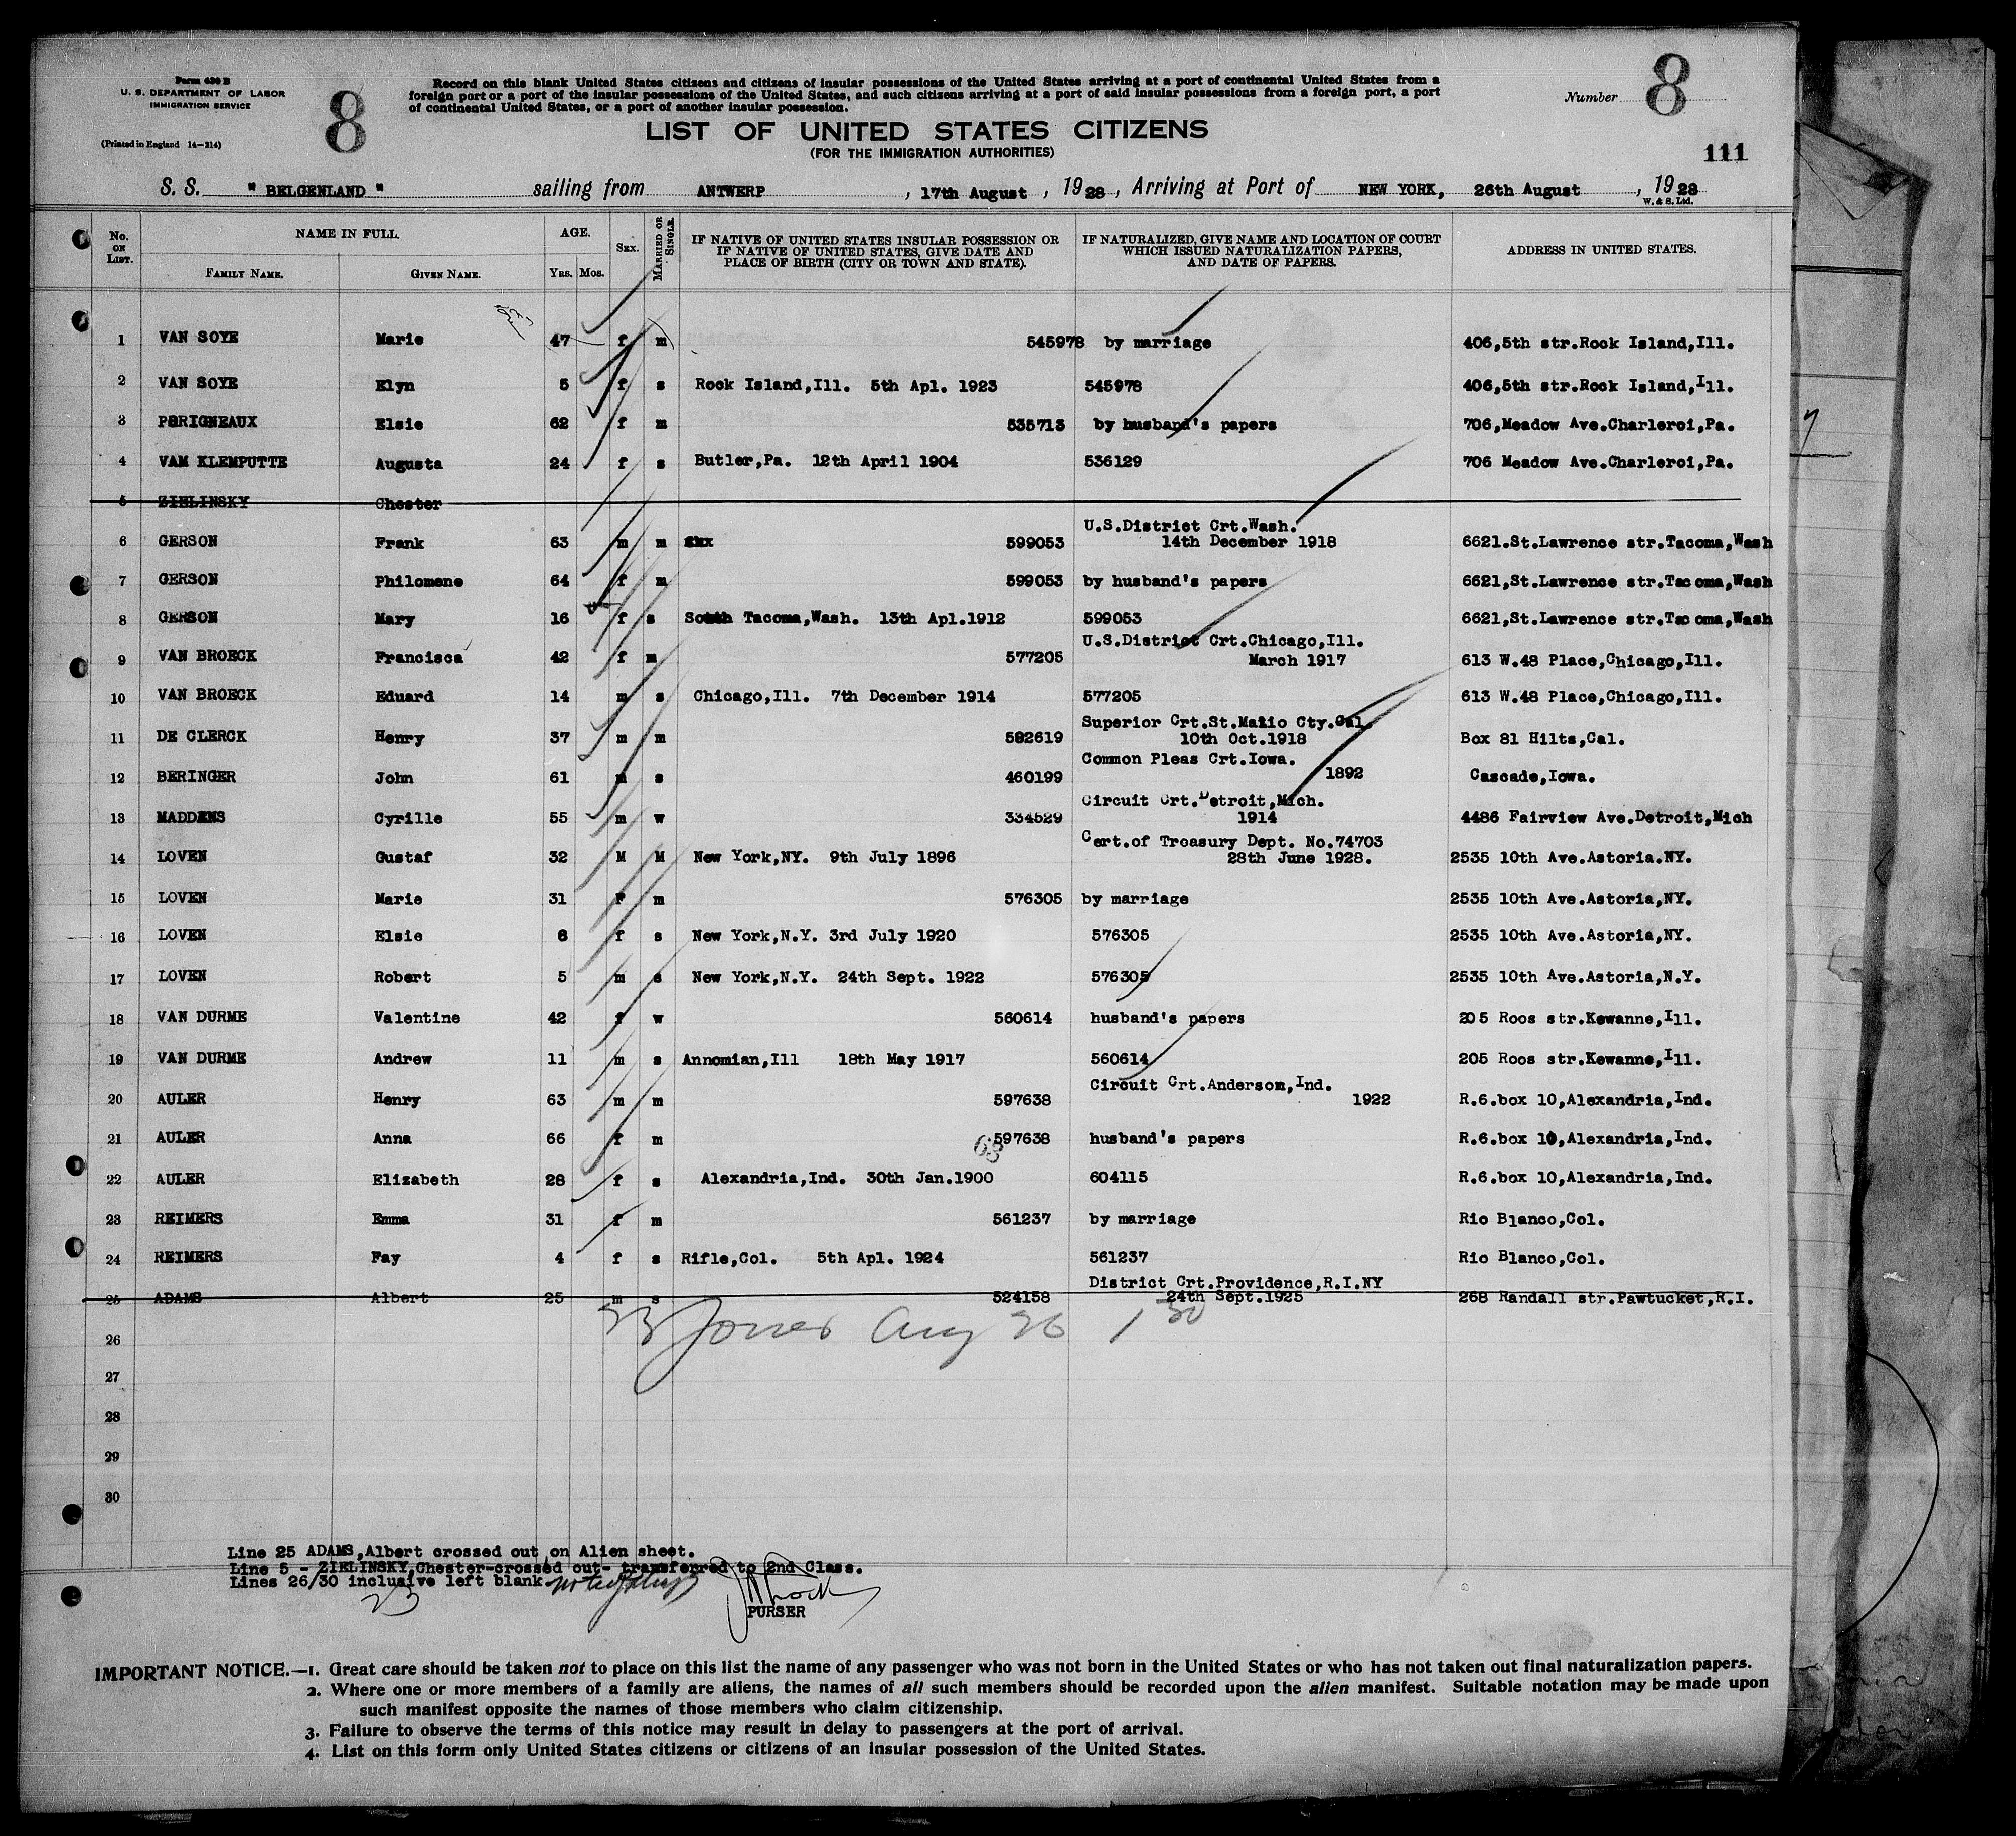 Form 630 B
U. S. DEPARTMENT OF LABOR
IMMIGRATION SERVICE
(Printed in England 14—214)
8
Record on this blank United States citizens and citizens of insular possessions of the United States arriving at a port of continental United States from a
foreign port or a port of the insular possessions of the United States, and such citizens arriving at a port of said insular possessions from a foreign port, a port
of continental United States, or a port of another insular possession.
LIST OF UNITED STATES CITIZENS
(FOR THE IMMIGRATION AUTHORITIES)
Number 8
111
S. S. " BELGENLAND " sailing from ANTWERP , 17th August , 1928 , Arriving at Port of NEW YORK, 26th August , 1928
W. & S. Ltd.
No. ON LIST. NAME IN FULL. AGE. SEX. MARRIED OR SINGLE. IF NATIVE OF UNITED STATES INSULAR POSSESSION OR IF NATIVE OF UNITED STATES, GIVE DATE AND PLACE OF BIRTH (CITY OR TOWN AND STATE). IF NATURALIZED, GIVE NAME AND LOCATION OF COURT WHICH ISSUED NATURALIZATION PAPERS, AND DATE OF PAPERS. ADDRESS IN UNITED STATES.
FAMILY NAME. GIVEN NAME. YRS. MOS.
1 VAN SOYE Marie 47 f m 545978 by marriage 406,5th str.Rock Island,Ill.
2 VAN SOYE Elyn 5 f s Rock Island,Ill. 5th Apl. 1923 545978 406,5th str.Rock Island,Ill.
3 PERIGNEAUX Elsie 62 f m 535713 by husband's papers 706,Meadow Ave.Charleroi,Pa.
4 VAM KLEMPUTTE Augusta 24 f s Butler,Pa. 12th April 1904 536129 706 Meadow Ave.Charleroi,Pa.
5 ZIELINSKY Chester
U.S.District Crt.Wash.
6 GERSON Frank 63 m m 599053 14th December 1918 6621.St.Lawrence str.Tacoma,Wash
7 GERSON Philomene 64 f m 599053 by husband's papers 6621,St.Lawrence str.Tacoma,Wash
8 GERSON Mary 16 f s South Tacoma,Wash. 13th Apl.1912 599053 6621,St.Lawrence str.Tacoma,Wash
U.S.District Crt.Chicago,Ill.
9 VAN BROECK Francisca 42 f m 577205 March 1917 613 W.48 Place,Chicago,Ill.
10 VAN BROECK Eduard 14 m s Chicago,Ill. 7th December 1914 577205 613 W.48 Place,Chicago,Ill.
Superior Crt.St.Matio Cty.Cal.
11 DE CLERCK Henry 37 m m 582619 10th Oct.1918 Box 81 Hilts,Cal.
Common Pleas Crt.Iowa.
12 BERINGER John 61 m s 460199 1892 Cascade,Iowa.
Circuit Crt.Detroit,Mich.
13 MADDENS Cyrille 55 m w 334529 1914 4486 Fairview Ave.Detroit,Mich
Cert.of Treasury Dept. No.74703
14 LOVEN Gustaf 32 M M New York,NY. 9th July 1896 28th June 1928. 2535 10th Ave.Astoria.NY.
15 LOVEN Marie 31 F m 576305 by marriage 2535 10th Ave.Astoria,NY.
16 LOVEN Elsie 8 f s New York,N.Y. 3rd July 1920 576305 2535 10th Ave.Astoria,NY.
17 LOVEN Robert 5 m s New York,N.Y. 24th Sept. 1922 576305 2535 10th Ave.Astoria,N.Y.
18 VAN DURME Valentine 42 f w 560614 husband's papers 205 Roos str.Kewanne,Ill.
19 VAN DURME Andrew 11 m s Annomian,Ill 18th May 1917 560614 205 Roos str.Kewanne,Ill.
Circuit Crt.Anderson,Ind.
20 AULER Henry 63 m m 597638 1922 R.6.box 10,Alexandria,Ind.
21 AULER Anna 66 f m 597638 husband's papers R.6.box 10,Alexandria,Ind.
63
22 AULER Elizabeth 28 f s Alexandria,Ind. 30th Jan.1900 604115 R.6.box 10,Alexandria,Ind.
23 REIMERS Emma 31 f m 561237 by marriage Rio Blanco,Col.
24 REIMERS Fay 4 f s Rifle,Col. 5th Apl. 1924 561237 Rio Blanco,Col.
District Crt.Providence,R.I.NY
25 ADAMS Albert 25 m s 524158 24th Sept.1925 268 Randall str.Pawtucket,R.I.
23 Jones Aug 26 1 30
26
27
28
29
30
Line 25 ADAMS,Albert crossed out on Alien sheet.
Line 5 - ZIELINSKY,Chester-crossed out- transferred to 2nd Class.
Lines 26/30 inclusive left blank.
23
PURSER
IMPORTANT NOTICE.—1. Great care should be taken not to place on this list the name of any passenger who was not born in the United States or who has not taken out final naturalization papers.
2. Where one or more members of a family are aliens, the names of all such members should be recorded upon the alien manifest. Suitable notation may be made upon
such manifest opposite the names of those members who claim citizenship.
3. Failure to observe the terms of this notice may result in delay to passengers at the port of arrival.
4. List on this form only United States citizens or citizens of an insular possession of the United States.